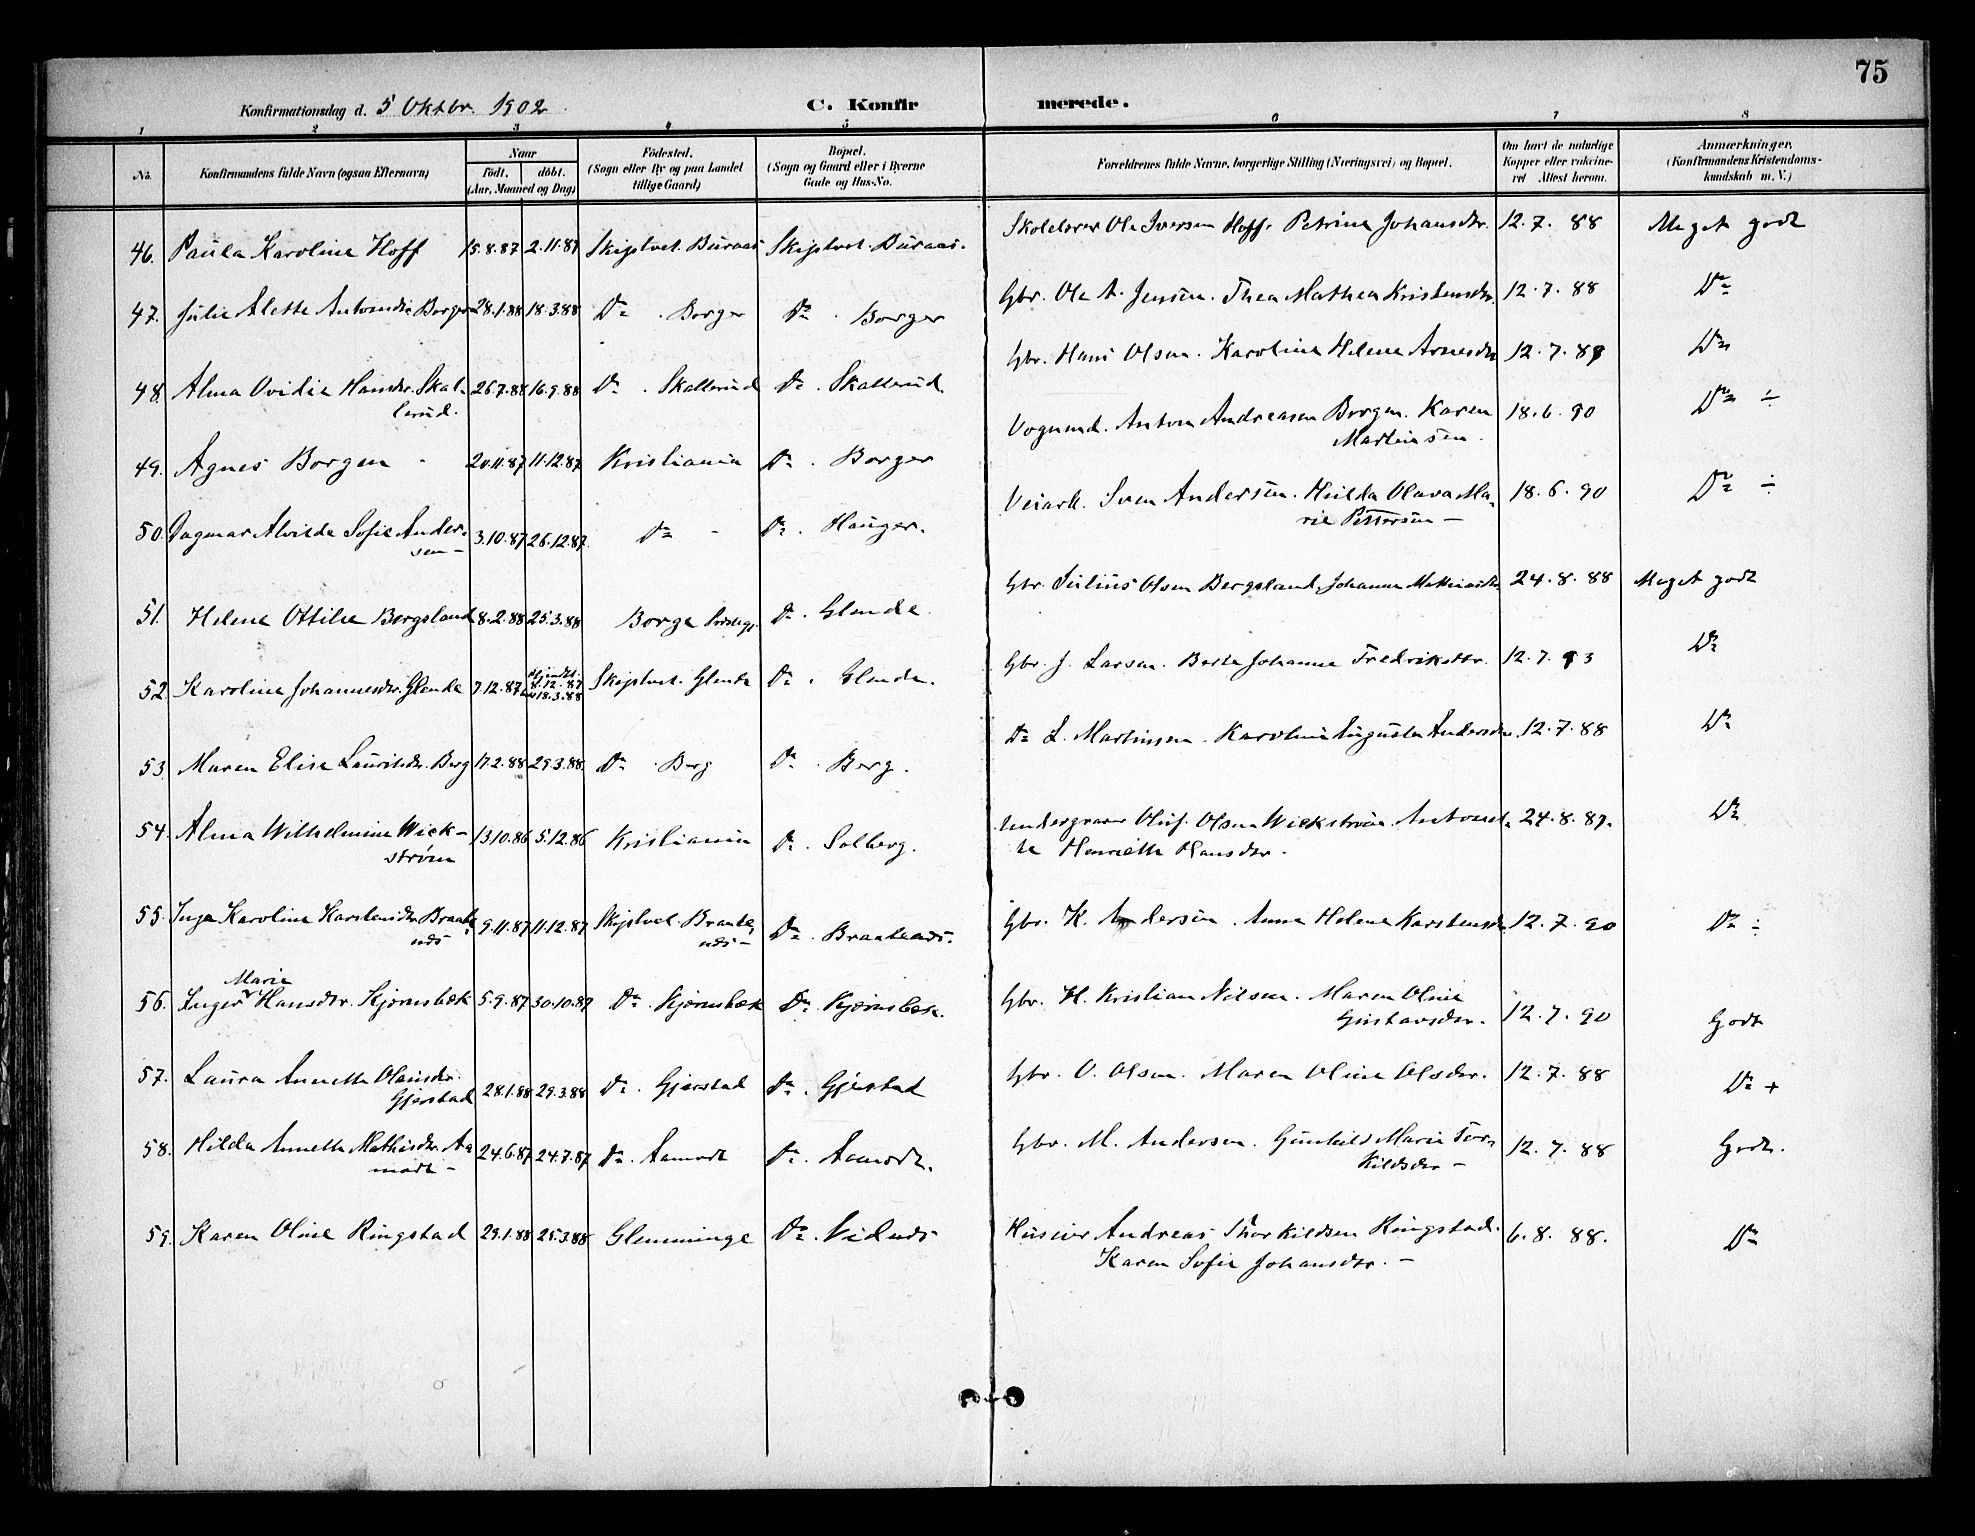 75
Konfirmationsdag d. 5 Oktbr. 1902.
C. Konfirmerede.
1 2 3 4 5 6 7 8
No.
Konfirmandens fulde Navn (ogsaa Efternavn)
Naar
Födt. döbt.
(Aar, Maaned og Dag)
Födested.
(Sogn eller By og paa Landet
tillige Gaard)
Bopæl.
(Sogn og Gaard eller i Byerne
Gade og Hus-No.
Forældrenes fulde Navne, borgerlige Stilling (Næringsvei) og Bopæl.
Om havt de naturlige
Kopper eller vaccine-
ret Attest herom.
Anmærkninger.
(Konfirmandens Kristendoms-
kundskab m. V.)
46. Paula Karoline Hoff 15.8.87 2.11.87 Skiptvet. Buraas Skiptvet. Buraas. Skolelærer Ole Iversen Hoff. Petrine Johansdtr. 12.7.88 Meget godt
47. Julie Alette Antonsdtr Borger 28.1.88 18.3.88 Do . Borger Do . Borger Gbr. Ole A. Jensen. Thea Mathea Kristensdtr. 12.7.88 Do
48. Alma Ovidie Hansdtr. Skal-
lerud. 26.7.88 16.9.88 Do . Skallerud Do . Skallerud. Gbr. Hans Olsen. Karoline Helene Arnesdtr 12.7.89 Do
49. Agnes Borgen 20.11.87 11.12.87 Kristiania Do . Borger Vognmd. Anton Andreasen Borgen. Karen
Martinsen. 18.6.90 Do ÷
50. Dagmar Alvilde Sofie Ander-
sen – 3.10.87 26.12.87. Do - Do . Hauger. Veiarb. Sven Andersen. Hulda Olava Ma-
rie Pettersen – 18.6.90 Do ÷
51. Helene Ottilie Bergsland 8.2.88 25.3.88 Borge Do . Glende. Gbr. Julius Olsen Bergsland. Johanne Mathiasdtr 24.8.88 Meget godt
52. Karoline Johannesdtr. Glende 7.12.87 hjemdbt.
8.12.87
18.3.88 Skiptvet. Glende Do . Glende. Gbr. J. Larsen. Berte Johanne Fredriksdtr. 12.7.93 Do
53. Maren Elise Lauritsdtr. Berg 17.2.88 29.3.88. Do . Berg Do . Berg. Do L. Martinsen. Karoline Augusta Andersdtr. 12.7.88 Do
54. Alma Wilhelmine Wick-
strøm 13.10.86 5.12.86 Kristiania Do . Solberg. Oluf Olsen Wickstrøm. Antonet-
te Henriette Hansdtr. 24.8.87. Do
55. Inga Karoline Karstensdtr. Braate-
uds 9.11.87 11.12.87 Skiptvet. Braate-
uds – Do . Braateuds. Gbr. K. Andersen. Anne Helene Karstensdtr 12.7.90 Do ÷
56. Inger Marie Hansdtr. Kjærnsbæk 5.9.87 30.10.87 Do . Kjærnsbæk Do . Kjærnsbæk. Gbr. H. Kristian Nilsen. Maren Oline
Gustavsdtr. 12.7.90 Godt
57. Laura Annette Olausdtr.
Gjerstad 28.1.88 29.3.88 Do . Gjerstad Do . Gjerstad Gbr. O. Olsen. Maren Oline Olsdtr. 12.7.88 Do +
58. Hilda Annette Mathisdtr. Aa
modt – 24.6.87 24.7.87 Do . Aamodt Do . Aamodt. Gbr. M. Andersen. Gunhild Marie Tor-
kildsdtr – 12.7.88 Godt.
59. Karen Oline Ringstad 29.1.88 25.3.88 Glemminge Do . Huseier Andreas Thorkildsen Ringstad.
Karen Sofie Johansdtr. – 6.8.88. Do